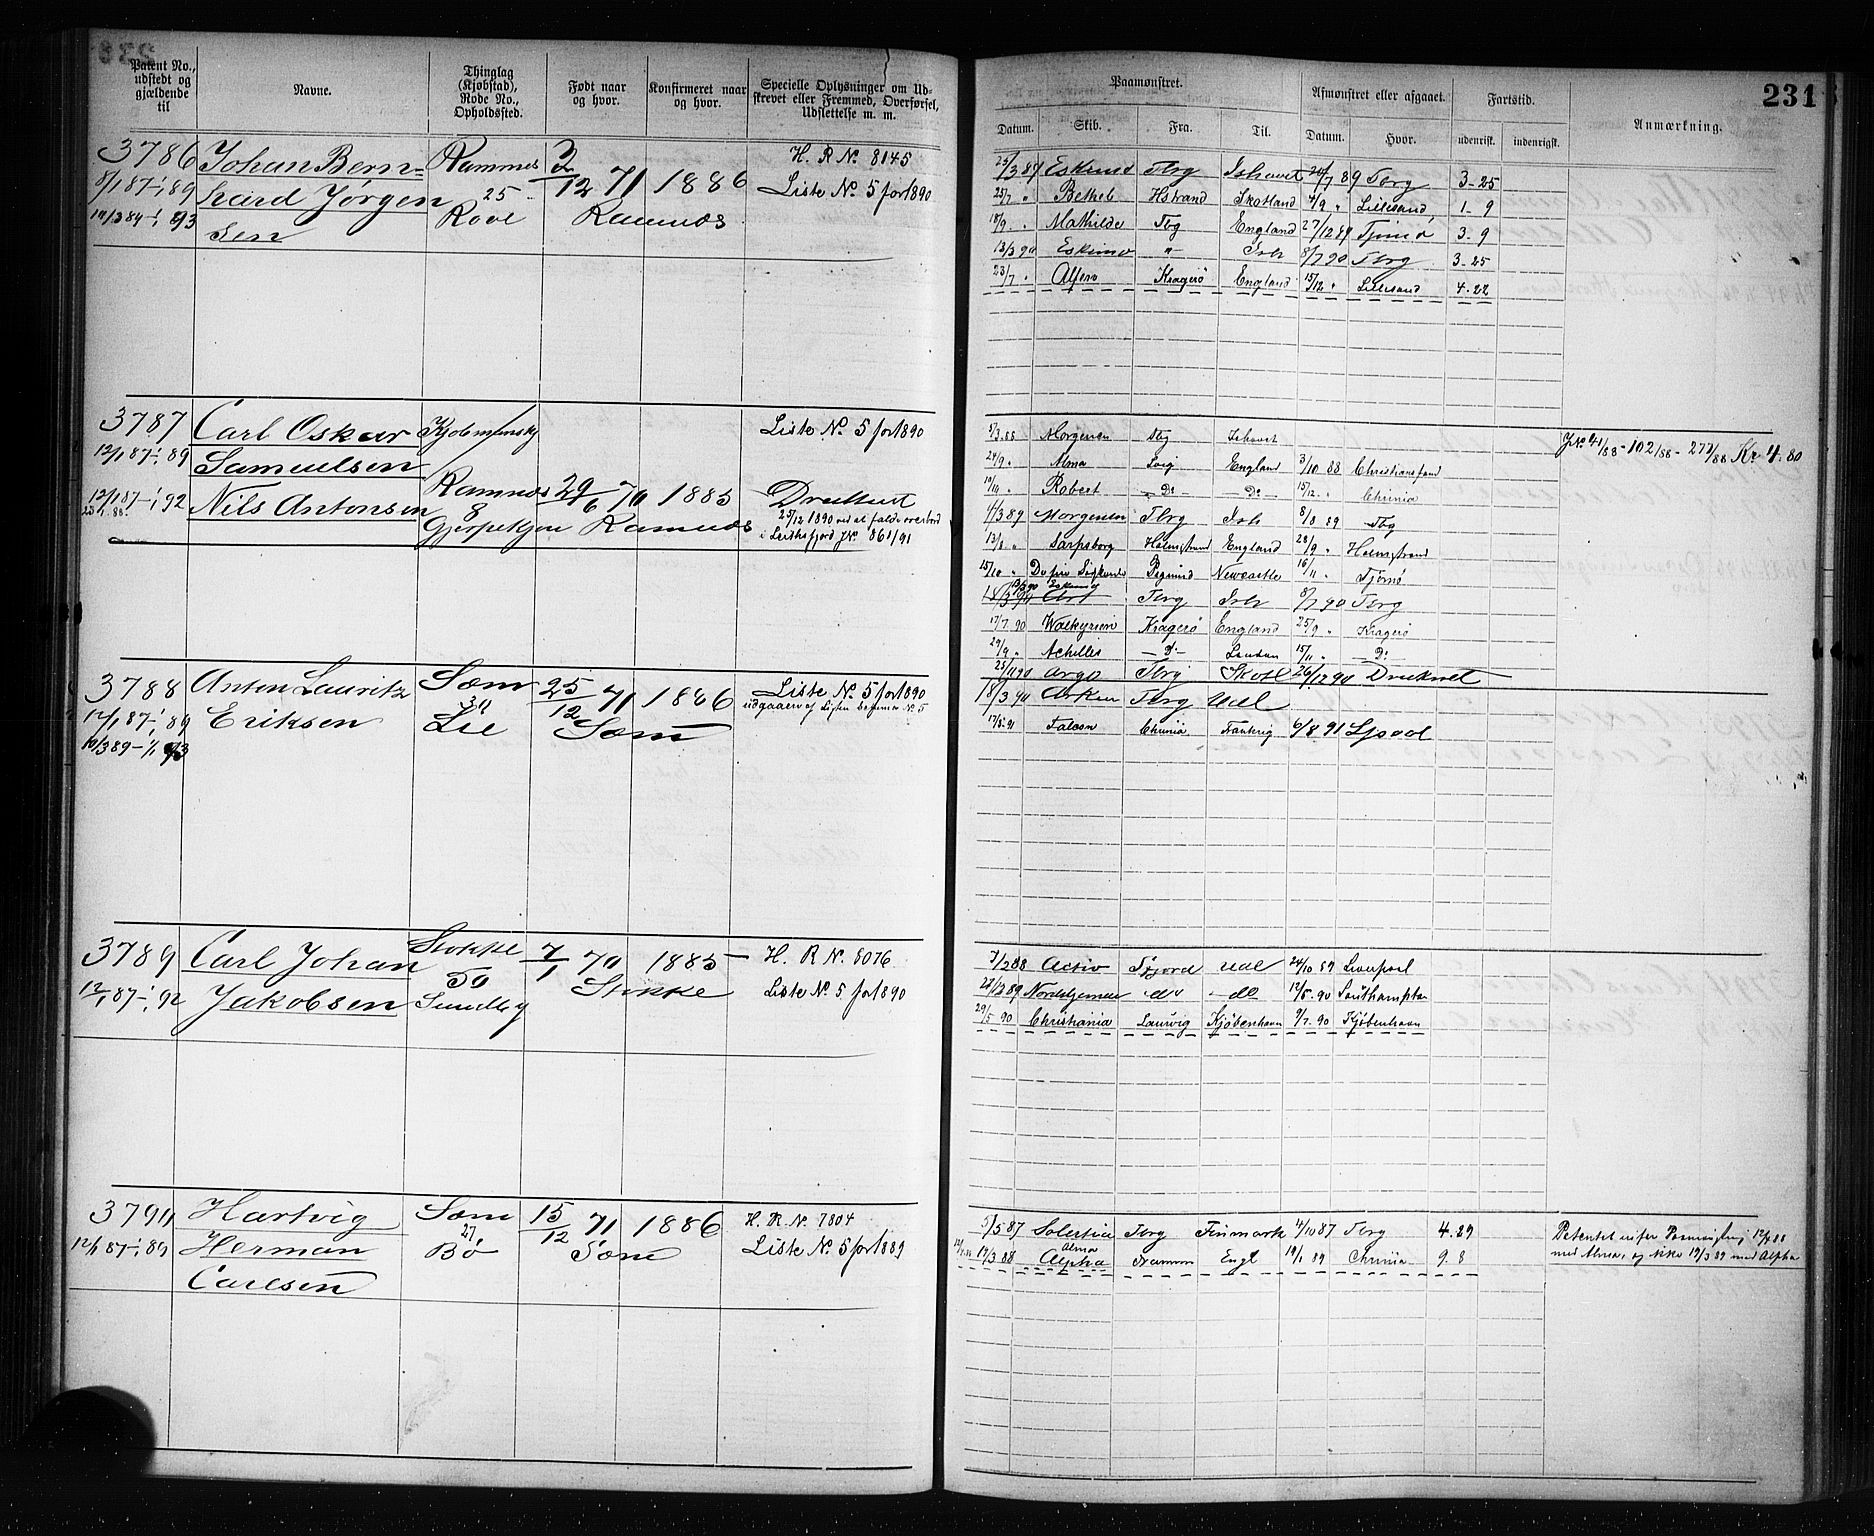 231
Patent No., udstedt og gjældende til
Navne.
Thinglag (Kjøbstad), Rode No., Opholdssted.
Født naar og hvor.
Konfirmeret naar og hvor.
Specielle Oplysninger om Udskrevet eller Fremmed, Overførsel, Udslettelse m. m.
Paamønstret.
Afmønstret eller afgaaet.
Fartstid.
Anmærkning.
Datum. Skib. Fra. Til. Datum. Hvor. udenrigsk. indenrigsk.
3786 Johan Bern= Ramnes H. R No. 8145
8/1 87-1/1 89 hard Jørgen 25 12 71 1886 Liste No. 5 for 1890
1/1 93 sen Rove Ramnes
25/3 89 Eskimo Tbrg Ishavet 89 Tbrg 3-25
25/7 " Bethel Hstrand Skotland /9 " Lillesand 1-9
18/9 " Mathilde Tbg England 27/12 89 Tjømø 3-9
13/3 90 Eskimo " Ish 8/7 90 Tbrg 3-25
23/7 " Alfero Kragerø England 15/12 " Lillesand 4-22
3787 Carl Oskar Liste No. 5 for 1890
12/1 87-1/1 89 Samuelsen
12/1 87-1/1 92 Nils Antonsen Ramnes 8 29/6 70 1885 Druknet
Ramnes 25/12 1890 ved at falde overbord
i JNo 861/91
5/3 88 Morgenen Tbg Ishavet
24/9 " Alma Lvig England 3/10 88 Christiansand
Robert - Do - - Do - 15/12 " Chrnia
4/3 89 Morgenen Tbrg Ish 8/8 89 Tbg
13/8 " Sarpsborg Holmstrand England 28/9 " Holmstrand
15/10 " De fire Newcastle 16/11 " Tjømø
Eskimo Tbrg Ish 8/7 90 Tbrg
17/7 90 Walkyrien Kragerø England 25/9 " Kragerø
29/9 " Achilles - Do - London 15/11 " - Do -
25/11 90 Argo Tbrg Skotl 26/12 90 Druknet
102/88 - Kr 4.80
3788 Anton Lauritz Sæm 25/12 71 1886 Liste No. 5 for 1890
12/1 87-1/1 89 Eriksen Lie Sæm
10/3 89-1/1 93
18/3 90 Arken Tbrg Udl
17/3 91 Falcon Chrnia Frankrig 6/8 91 Lpool
3789 Carl Johan Stokke 7/1 70 1885 H. R No. 8076
12/1 87-1/1 92 Jakobsen 50 Sundby Stokke Liste No. 5 for 1890
7/2 88 Activ Tfjord Udl 24/10 89 Liverpool
89 Nordstjernen do do 12/5 90 Southampton
29/5 90 Christiania Laurvig Kjøbenhavn 9/7 90 Kjøbenhavn
3790 Hartvig Sæm 15/12 71 1886 H. R No. 7804
12/1 87-1/1 89 Herman 27 Bø Sæm Liste No. 5 for 1889
Carlsen
5/5 87 Solertia Tbrg Finmark 4/10 87 Tbrg 4.29
19/3 88 Alma Alpha Drammen Engl 19/1 89 Chrnia 9.8
med Alma, og ikke 19/3 89 med Alpha